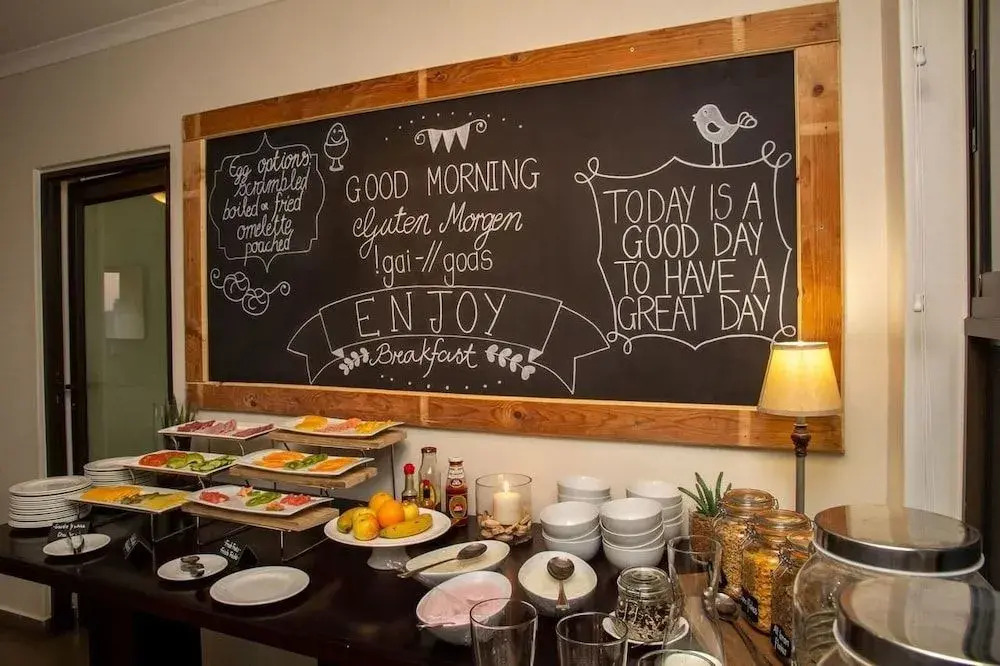 Egg options
Scrambled
boiled or fried
omelette
poached
GOOD MORNING
Guten Morgen
!gai-// goas
ENJOY
Breakfast
TODAY IS A
GOOD DAY
TO HAVE A
GREAT DAY